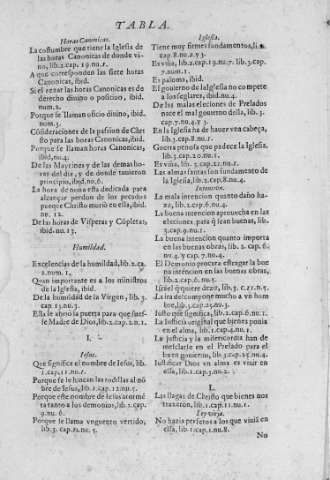 TABLA.
Horas Canonicas.
La costumbre que tiene la Iglesia de
las horas Canonicas de donde vi-
no, lib.2.cap. 19.nu.1.
A que corresponden las siete horas
Canonicas, ibid.
Si el rezar las horas Canonicas es de
derecho diuino o posiciuo, ibid.
num.2.
Porque se llaman oficio diuino, ibid.
num.3.
Cósideraciones de la passion de Chri
sto para las horas Canonicas, ibid.
Porque se llaman horas Canonicas,
ibid.nu.4.
De las Maytines y de las demas ho-
ras del dia, y de donde tuuieron
principio, ibid.nu.6.
La hora de nona esta dedicada para
alcançar perdon de los pecados
porque Christo murio en ella, ibid
nu. 12.
De las horas de Visperas y Cópletas,
ibid.nu.13.
Humildad.
Excelencias de la humildad, lib.2.ca.
2.num.1.
Quan importante es a los ministros
de la Iglesia, ibid.
De la humildad de la Virgen, lib.3.
cap.13.nu.5.
Ella le abrio la puerta para que fuesse
Madre de Dios, lib.2.cap.2.nu.
I.
Iesus.
Que significa el nombre de Iesus, lib.
1.cap.11.nu.1.
Porque se le hincan las rodillas al nõ
bre de Iesus, lib.1.cap.12.nu.5.
Porque este nombre de Iesus atormé
ta tanto a los demonios, lib.2.cap.
9.nu.6.
Porque se llama vnguento vertido,
lib.3.cap.12.nu.5.
Iglesia.
Tiene muy firmes fundamentos, li.
cap.8.nu.2.y 3.
Es viña, lib.2.cap.19.nu.7. lib.3.cap.
7.num.1.
Es paloma, ibid.
El gouierno de la Iglesia no compete
a los seglares, ibid.nu.4.
De las malas eleciones de Prelados
nace el mal gouierno della, lib.3.
cap.7.nu.4.y 3.
En la Iglesia ha de hauer vna cabeça,
lib.3.cap.8.nu.1.
Guerra penosa que padece la Iglesia,
lib.3.cap.2.nu.1.
Es viña, lib.3.cap.22.nu.1.
Las almas santas son fundamento de
la Iglesia, lib.2.cap.8.nu.4.
Intencion.
La mala intencion quanto daño ha-
ze, lib.2.cap.6.nu.4.
La buena intencion aprouecha en las
eleciones, para q̃ sean buenas, lib.
3.cap.9.nu.1.
La buena intencion quanto importa
en las buenas obras, lib.2.cap.6.
nu.4.y cap.7.nu.4.
El Demonio procura estragar la bue
na intencion en las buenas obras,
lib.2.cap.6.nu.2.
Iusto que significa, lib.2.cap.6.nu.1.
La Iusticia original que bienes ponia
en el alma, lib.1.cap.4.nu.1.
La justicia y la misericordia han de
mezclarse en el Prelado para el
buen gouierno, lib.3.cap.25.nu.4.
Iustificar Dios vn alma es viuir en
L.
Las llagas de Christo que bienes nos
traxeron, lib.1.cap.11.nu.1.
Ley vieja.
No hazia perfetos a los que viuiã en
ella, lib.1.cap.1.nu.8.
No